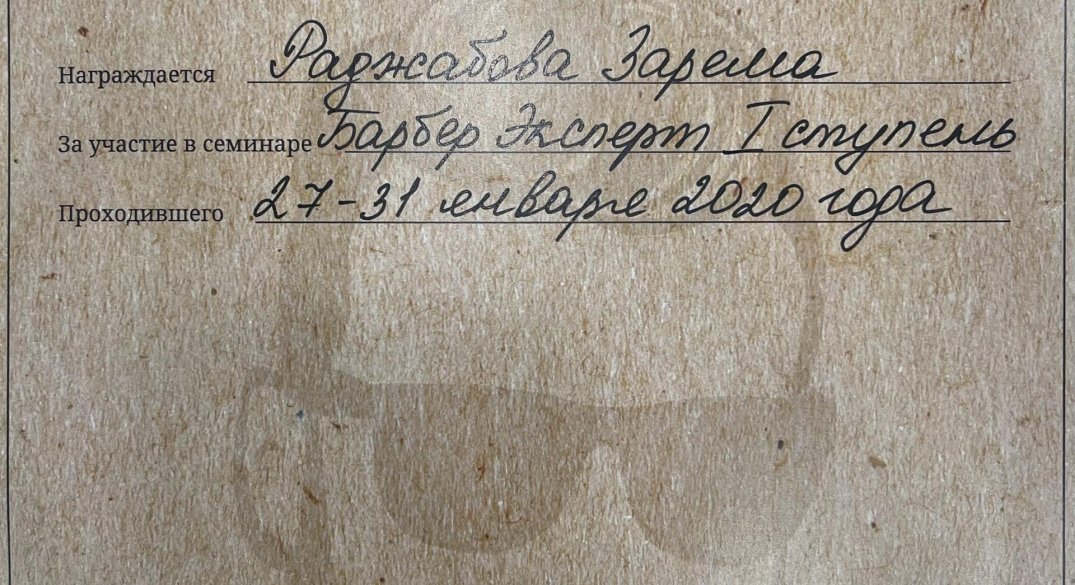 Награждается Раджабова Зарема
За участие в семинаре Барбер Эксперт I ступень
Проходившего 27-31 января 2020 года